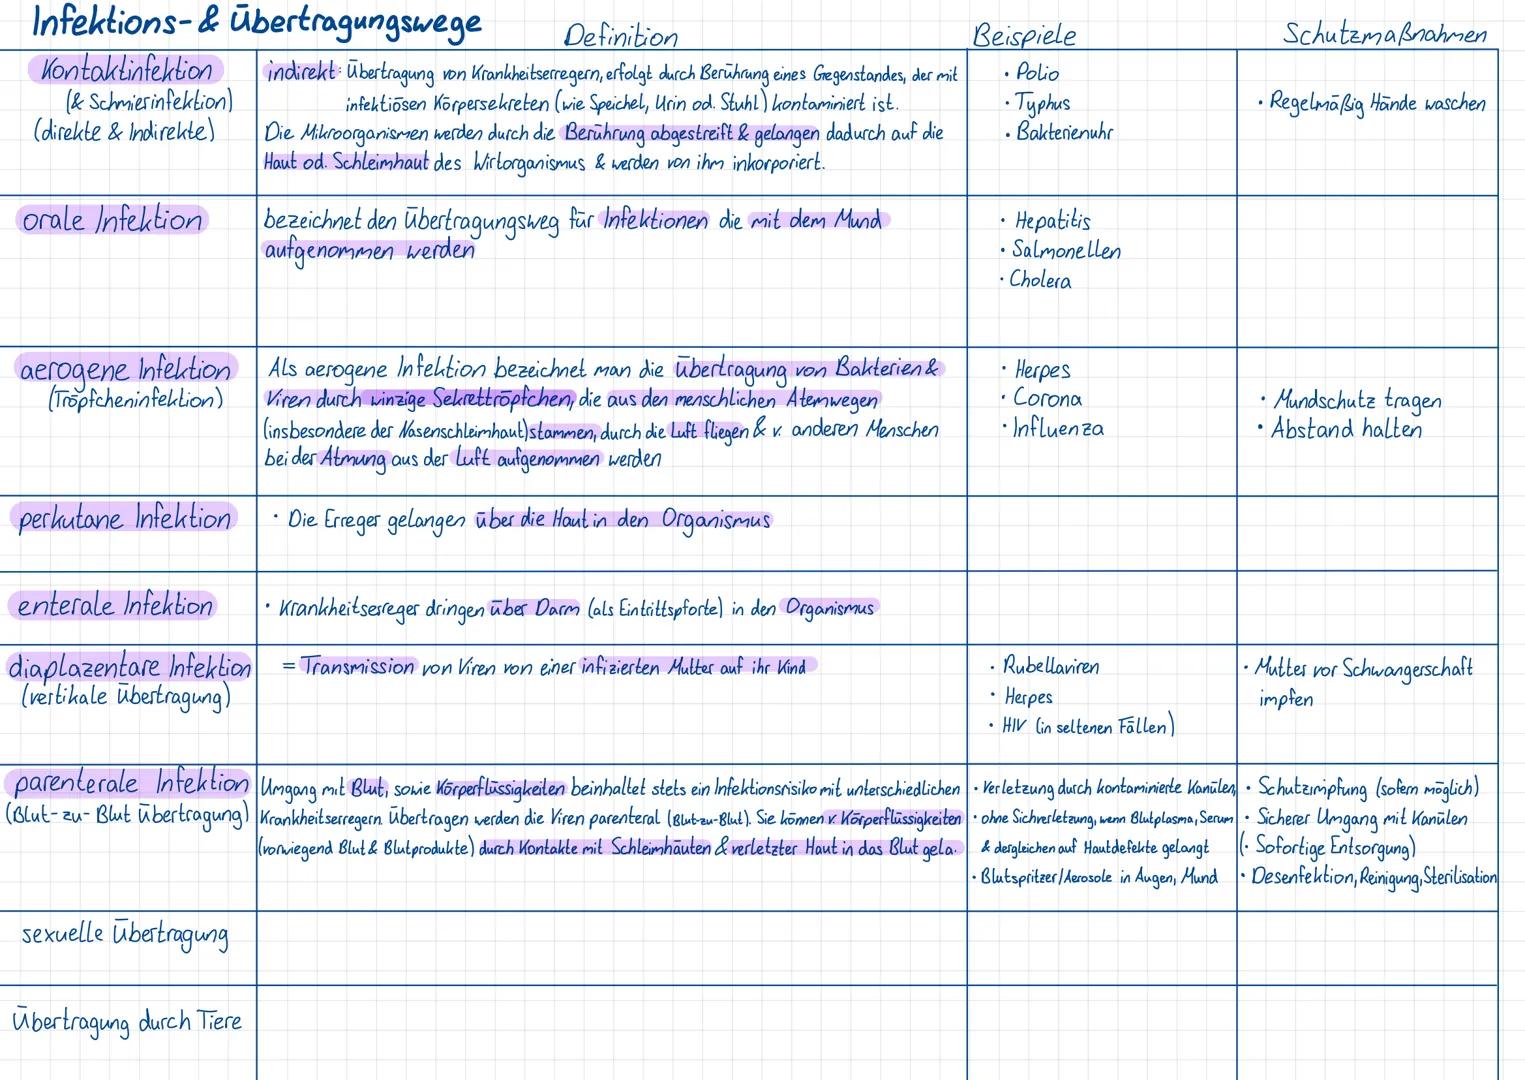 Infektions- & Übertragungswege
Definition
Beispiele
Schutzmaßnahmen
Kontaktinfektion
(& Schmierinfektion)
(direkte & Indirekte)
indirekt: Übertragung von Krankheitserregern, erfolgt durch Berührung eines Gegenstandes, der mit
infektiösen Körpersekreten (wie Speichel, Urin od. Stuhl) kontaminiert ist.
Die Mikroorganismen werden durch die Berührung abgestreift & gelangen dadurch auf die
Haut od. Schleimhaut des Wirtorganismus & werden von ihm inkorporiert.
• Polio
• Typhus
• Bakterienuhr
• Regelmäßig Hände waschen
orale Infektion
bezeichnet den Übertragungsweg für Infektionen die mit dem Mund
aufgenommen werden
• Hepatitis
• Salmonellen
• Cholera
aerogene Infektion
(Tröpfcheninfektion)
Als aerogene Infektion bezeichnet man die Übertragung von Bakterien &
Viren durch winzige Sekrettröpfchen, die aus den menschlichen Atemwegen
(insbesondere der Nasenschleimhaut) stammen, durch die Luft fliegen & v. anderen Menschen
bei der Atmung aus der Luft aufgenommen werden
• Herpes
• Corona
• Influenza
• Mundschutz tragen
• Abstand halten
perkutane Infektion
• Die Erreger gelangen über die Haut in den Organismus
enterale Infektion
• Krankheitserreger dringen über Darm (als Eintrittspforte) in den Organismus
diaplazentare Infektion
(vertikale Übertragung)
= Transmission von Viren von einer infizierten Mutter auf ihr Kind
• Rubellaviren
• Herpes
• HIV (in seltenen Fällen)
• Mutter vor Schwangerschaft
impfen
parenterale Infektion
(Blut-zu-Blut Übertragung)
Umgang mit Blut, sowie Körperflüssigkeiten beinhaltet stets ein Infektionsrisiko mit unterschiedlichen
Krankheitserregern. Übertragen werden die Viren parenteral (Blut-zu-Blut). Sie können v. Körperflüssigkeiten
(vorwiegend Blut & Blutprodukte) durch Kontakte mit Schleimhäuten & verletzter Haut in das Blut gela.
• Verletzung durch kontaminierte Kanülen,
• ohne Sichverletzung, wenn Blutplasma, Serum
& dergleichen auf Hautdefekte gelangt
• Blutspritzer/Aerosole in Augen, Mund
• Schutzimpfung (sofern möglich)
• Sicherer Umgang mit Kanülen
(• Sofortige Entsorgung)
• Desenfektion, Reinigung, Sterilisation
sexuelle Übertragung
Übertragung durch Tiere